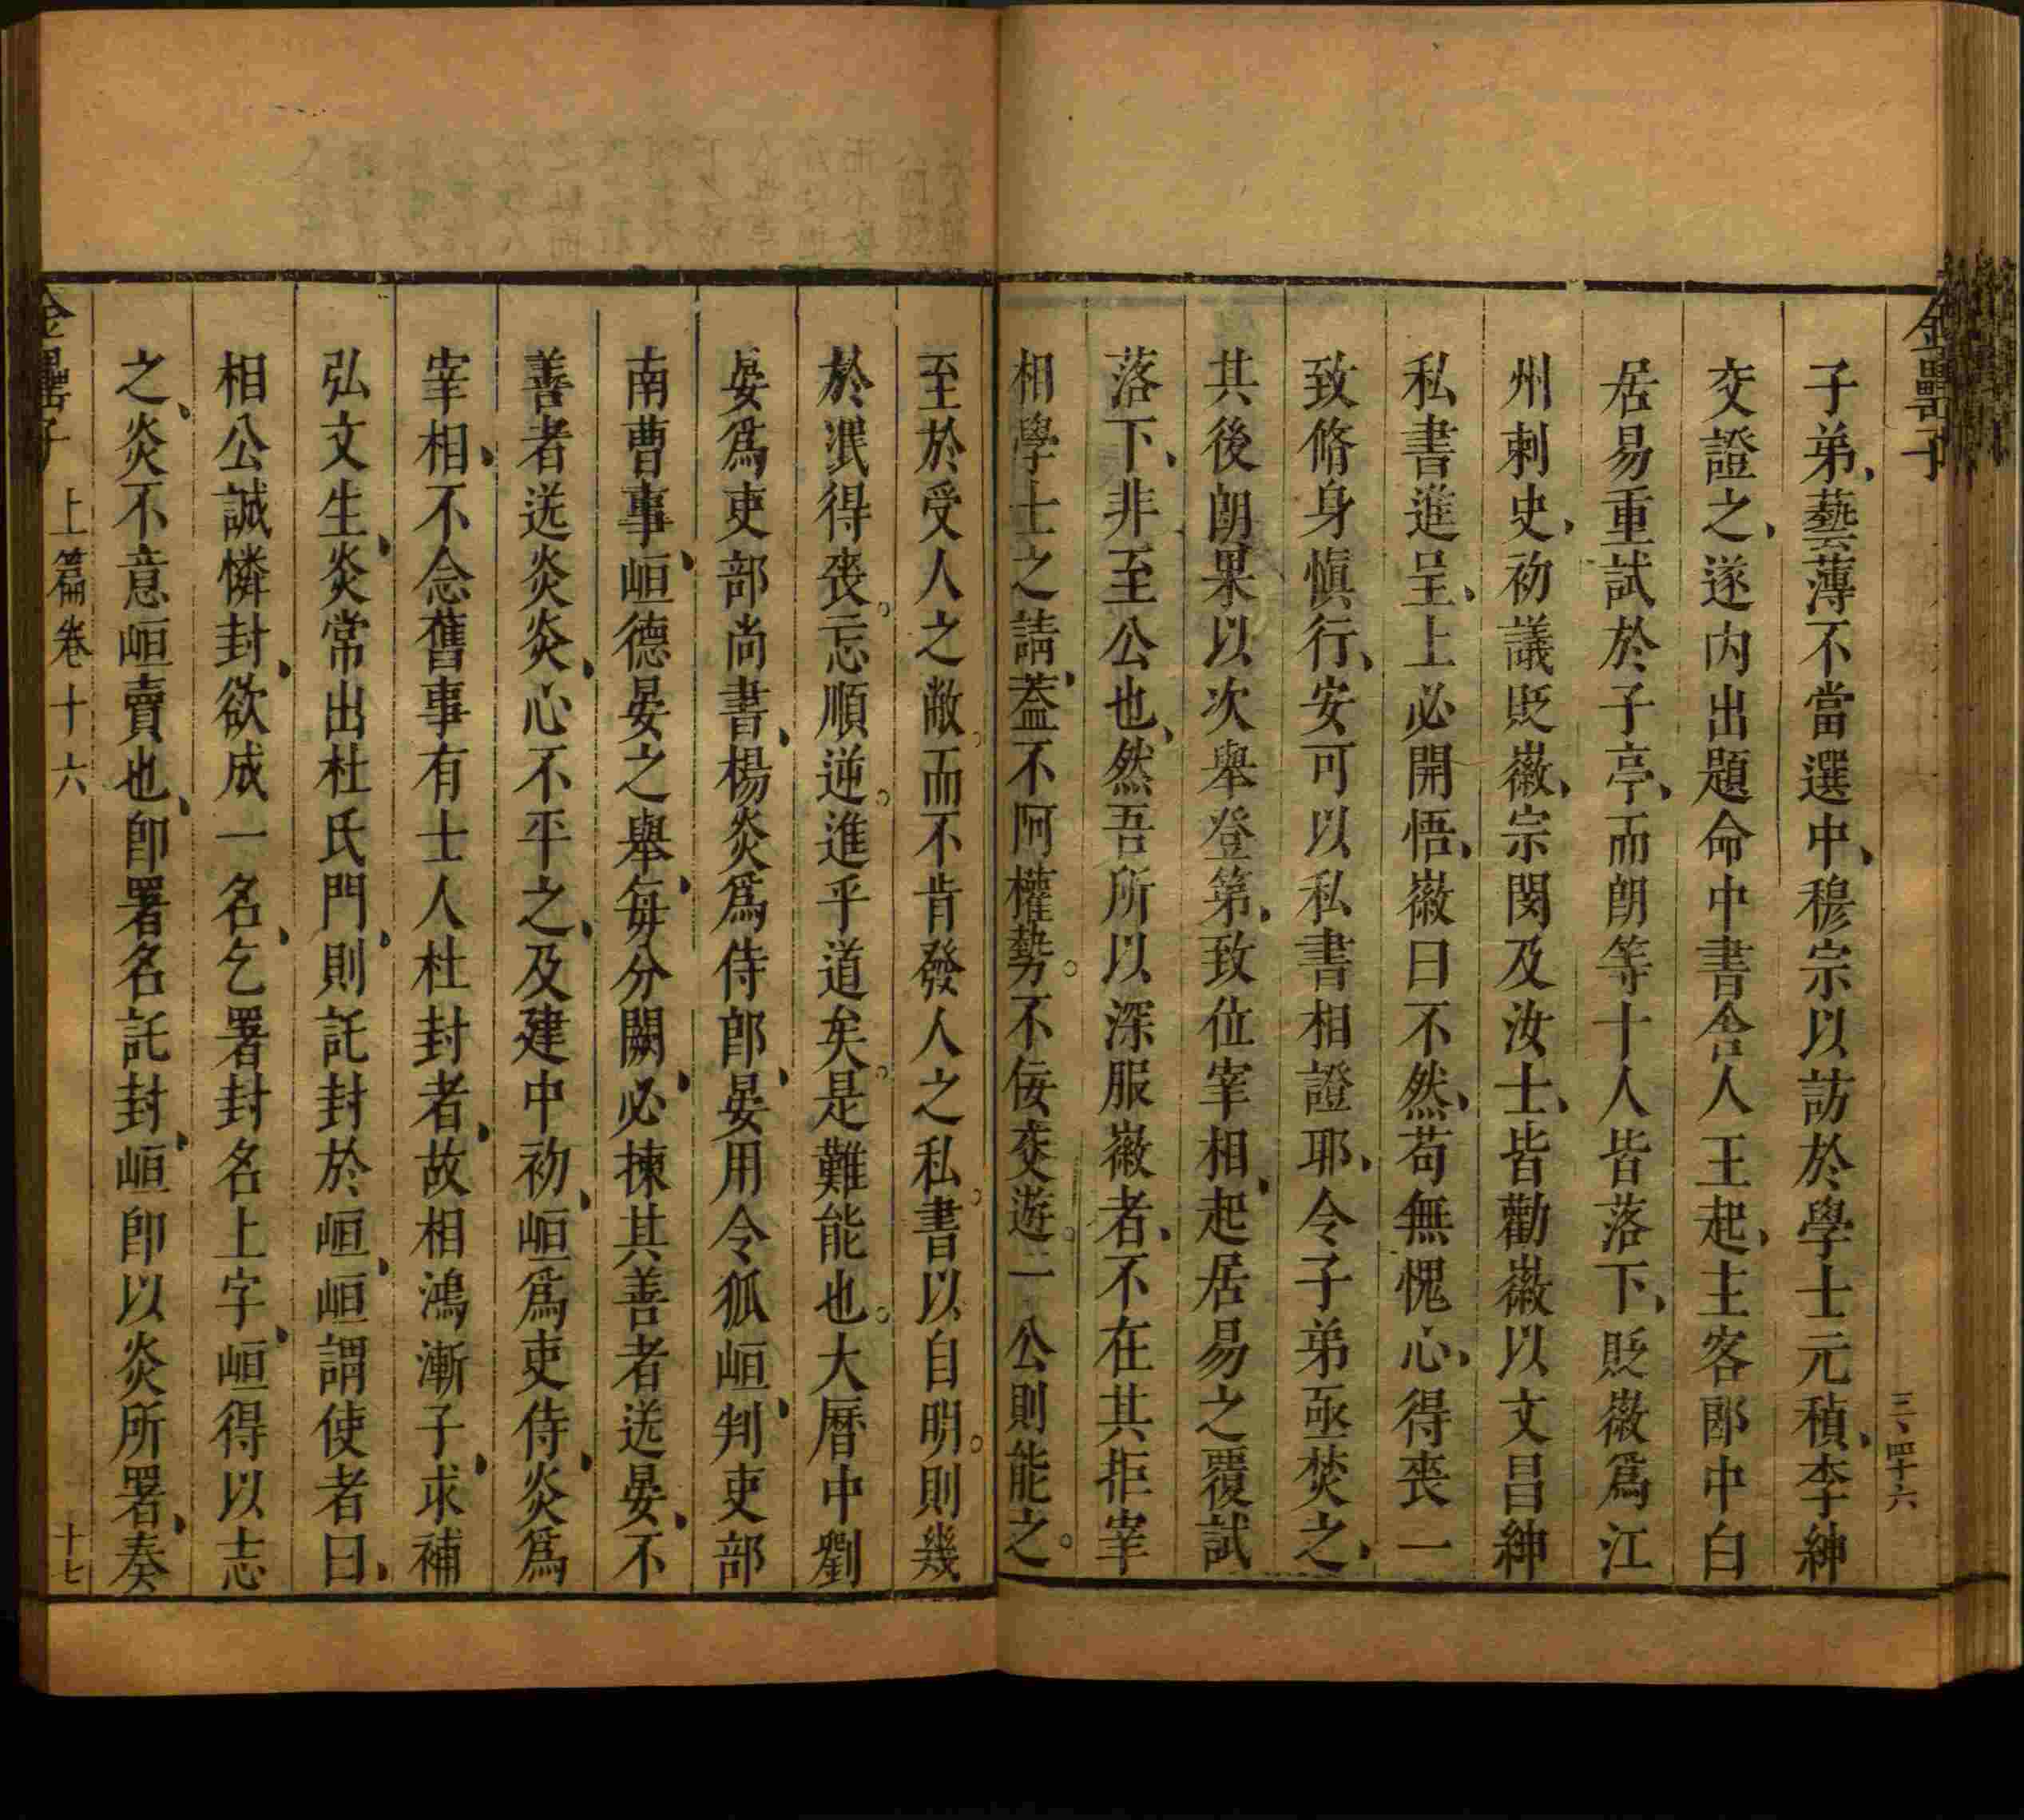 金罍子
三、四十六
子弟、藝薄不當選中、穆宗以訪於學士元稹、李紳
交證之、遂内出題命中書舍人王起、主客郎中白
居易重試於子亭、而朗等十人皆落下、貶徽爲江
州刺史、初議貶徽、宗閔及汝士、皆勸徽以文昌紳
私書進呈、上必開悟、徽曰不然、苟無愧心、得丧一
致脩身愼行、安可以私書相證耶、令子弟亟焚之、
其後朗果以次舉登第、致位宰相、起居易之覆試
落下、非至公也、然吾所以深服徽者、不在其拒宰
相學士之請、葢不阿權勢。不佞交遊。二公則能之。
至於受人之敝。而不肯發人之私。書以自明。則幾
於泯得丧。忘順逆。進乎道矣。是難能也。大曆中劉
晏爲吏部尚書、楊炎爲侍郎、晏用令狐峘、判吏部
南曹事、峘德晏之舉、每分闕、必揀其善者送晏、不
善者送炎炎、心不平之、及建中初、峘爲吏侍、炎爲
宰相、不念舊事有士人杜封者、故相鴻漸子、求補
弘文生、炎常出杜氏門、則託封於峘、峘謂使者曰、
相公誠憐封、欲成一名、乞署封名上字、峘得以志
之、炎不意峘賣也、卽署名託封、峘卽以炎所署、奏
金罍子 上篇卷十六 十七